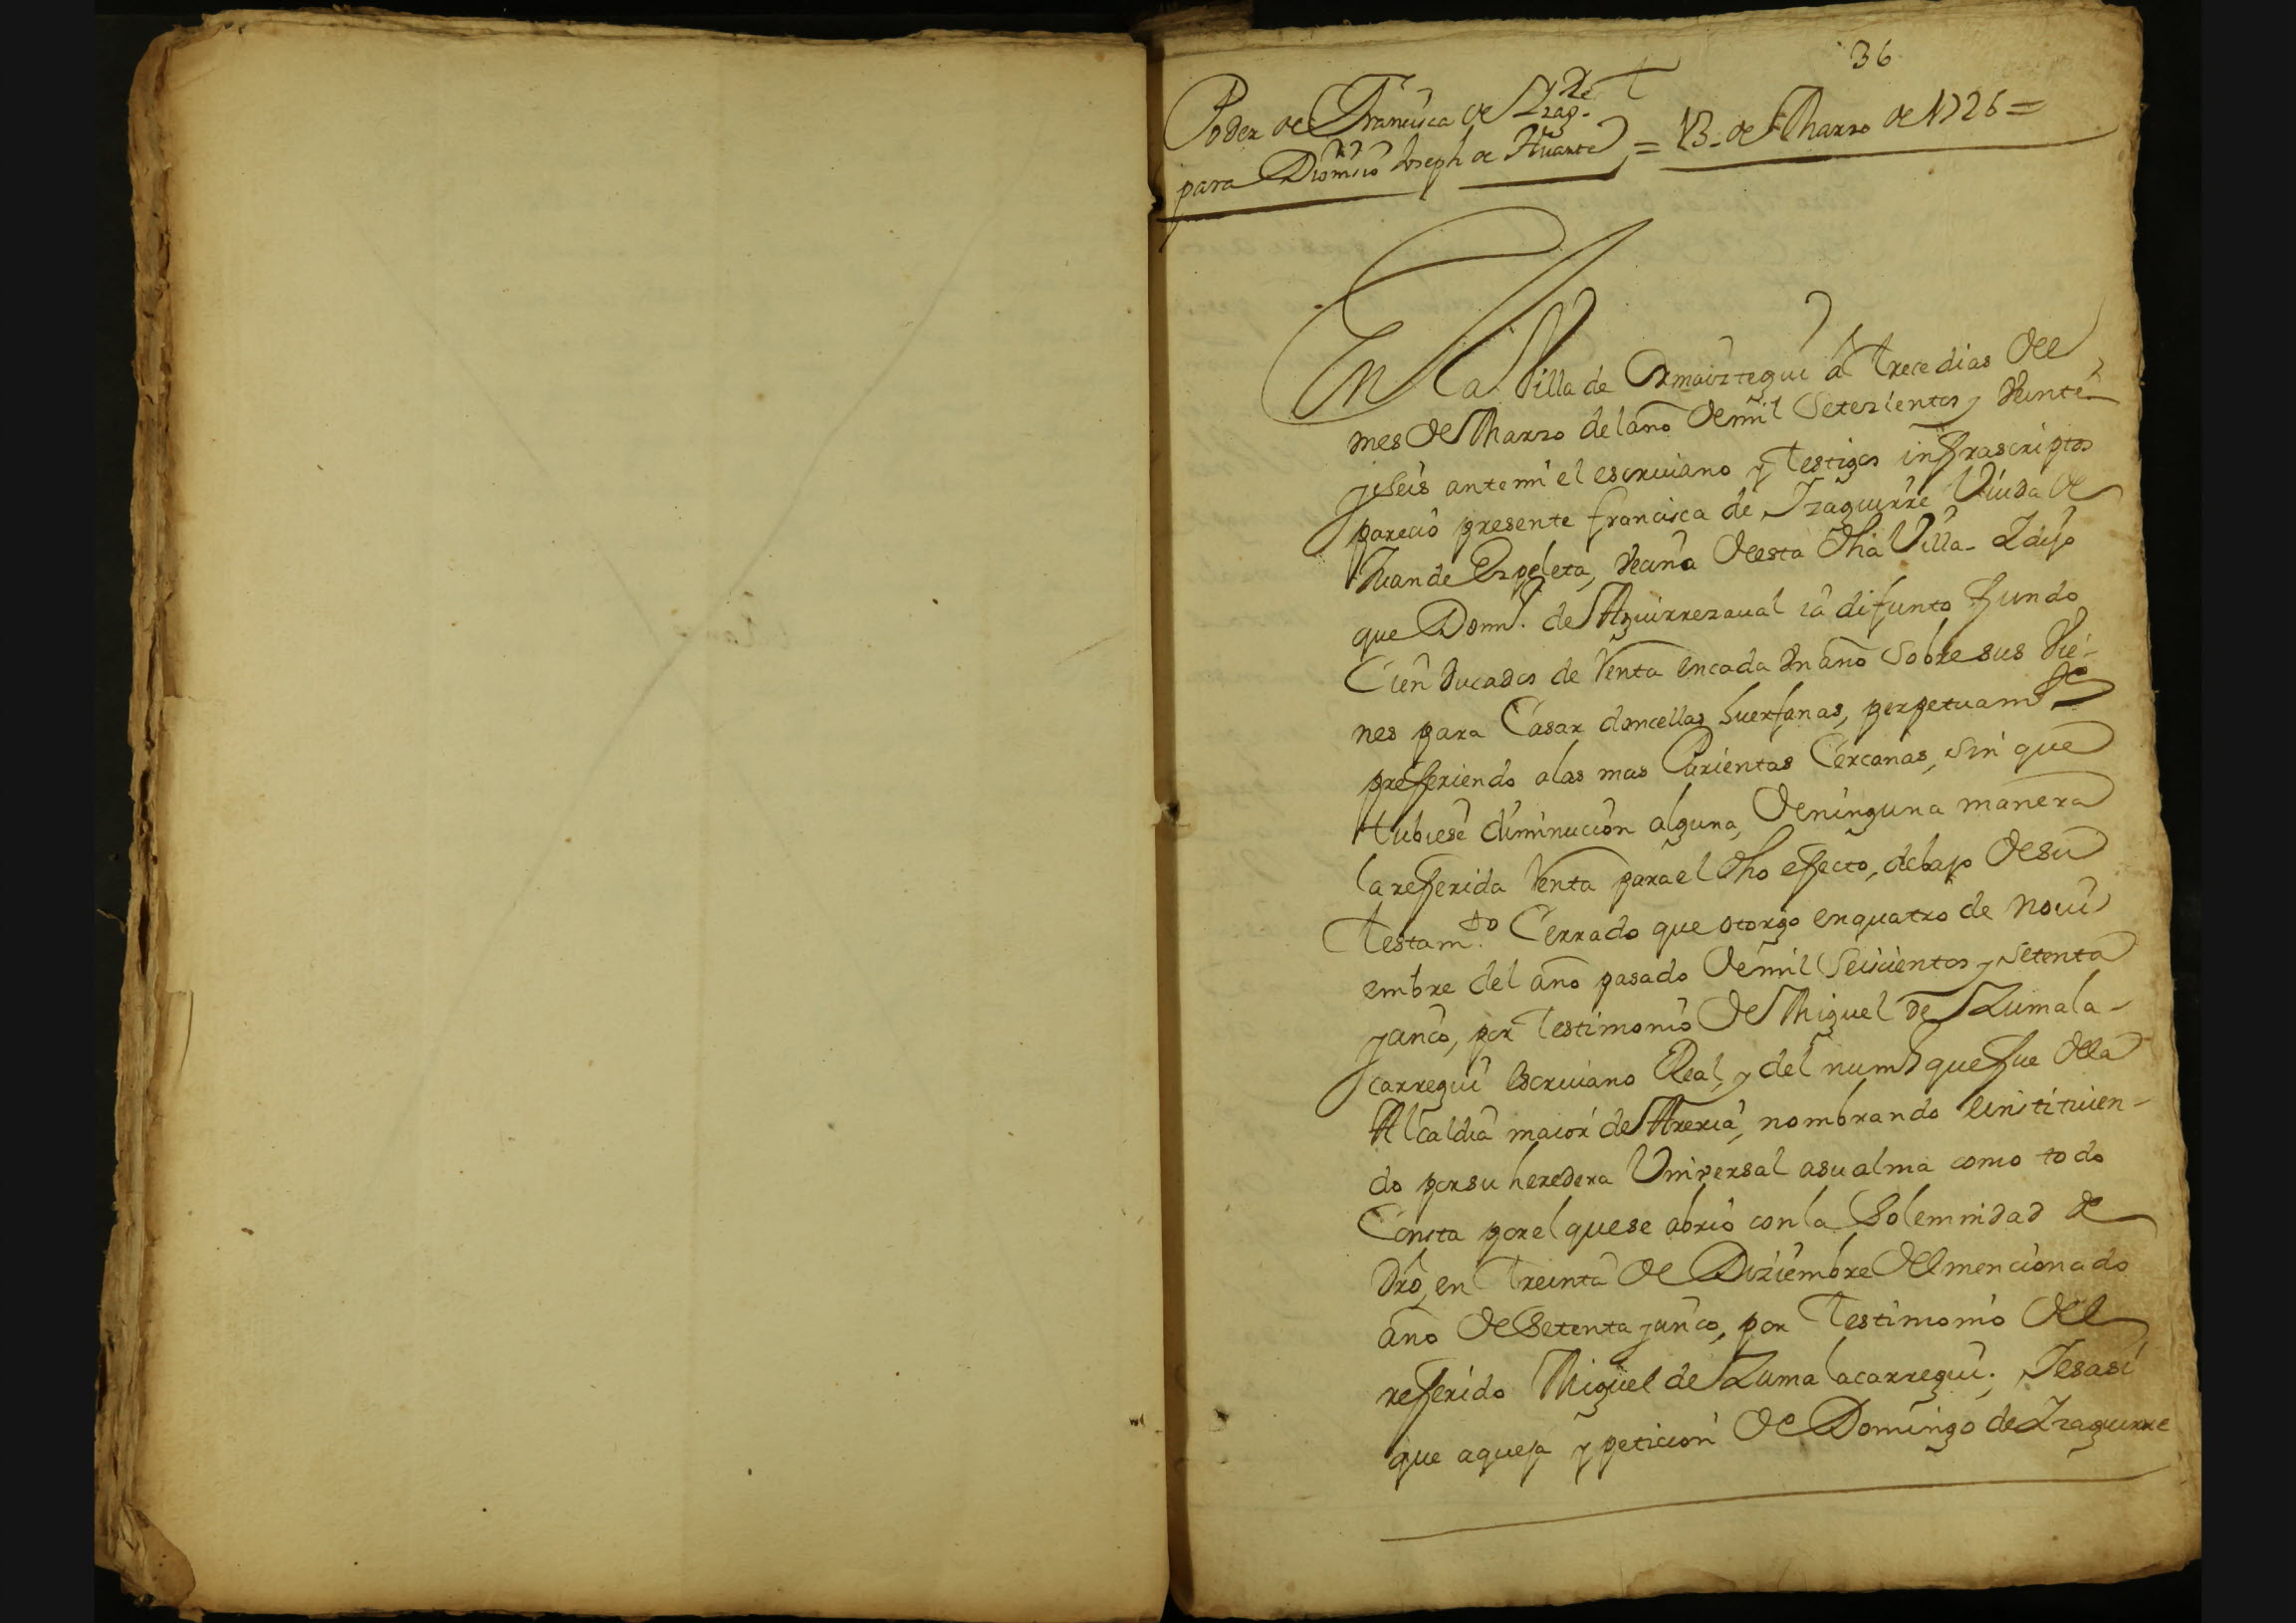 36
Poder de Francisca de Yzag.re
para Dionisio Joseph de Huarte = 13 de Marzo de 1726 =
En la Villa de Ormaiztegui a trece dias del
mes de Marzo del año de mil setezientos y veinte
y seis ante mi el escriuano y testigos infrascriptos
parecio presente francisca de Yzaguirre Viuda de
Juan de Ezpeleta, vecina de esta dha Villa. Y dijo
que Dom.o de Aguirrezaual ia difunto fundo
Cien ducados de renta en cada un año sobre sus vie-
nes para Casar doncellas huerfanas, perpetuam.te
prefferiendo a las mas Parientas Cercanas, sin que
tubiese diminucion alguna, de ninguna manera
la refferida renta para el dho effecto, debajo de su
testam.to Cerrado que otorgo en quatro de Noui
embre del año pasado de mil seiscientos y setenta
y cinco, por testimonio de Miguel de Zumala-
carregui escriuano Real, y del num.o que fue de la
Alcaldia maior de Areria, nombrando e instituien-
do por su heredera Vniversal a su alma como todo
Consta por el que se abrio con la Solemnidad de
dro, en treinta de Diziembre del mencionado
año de setenta y cinco, por testimonio del
refferido Miguel de Zumalacarregui; Y es asi
que a queja y peticion de Domingo de Yzaguirre